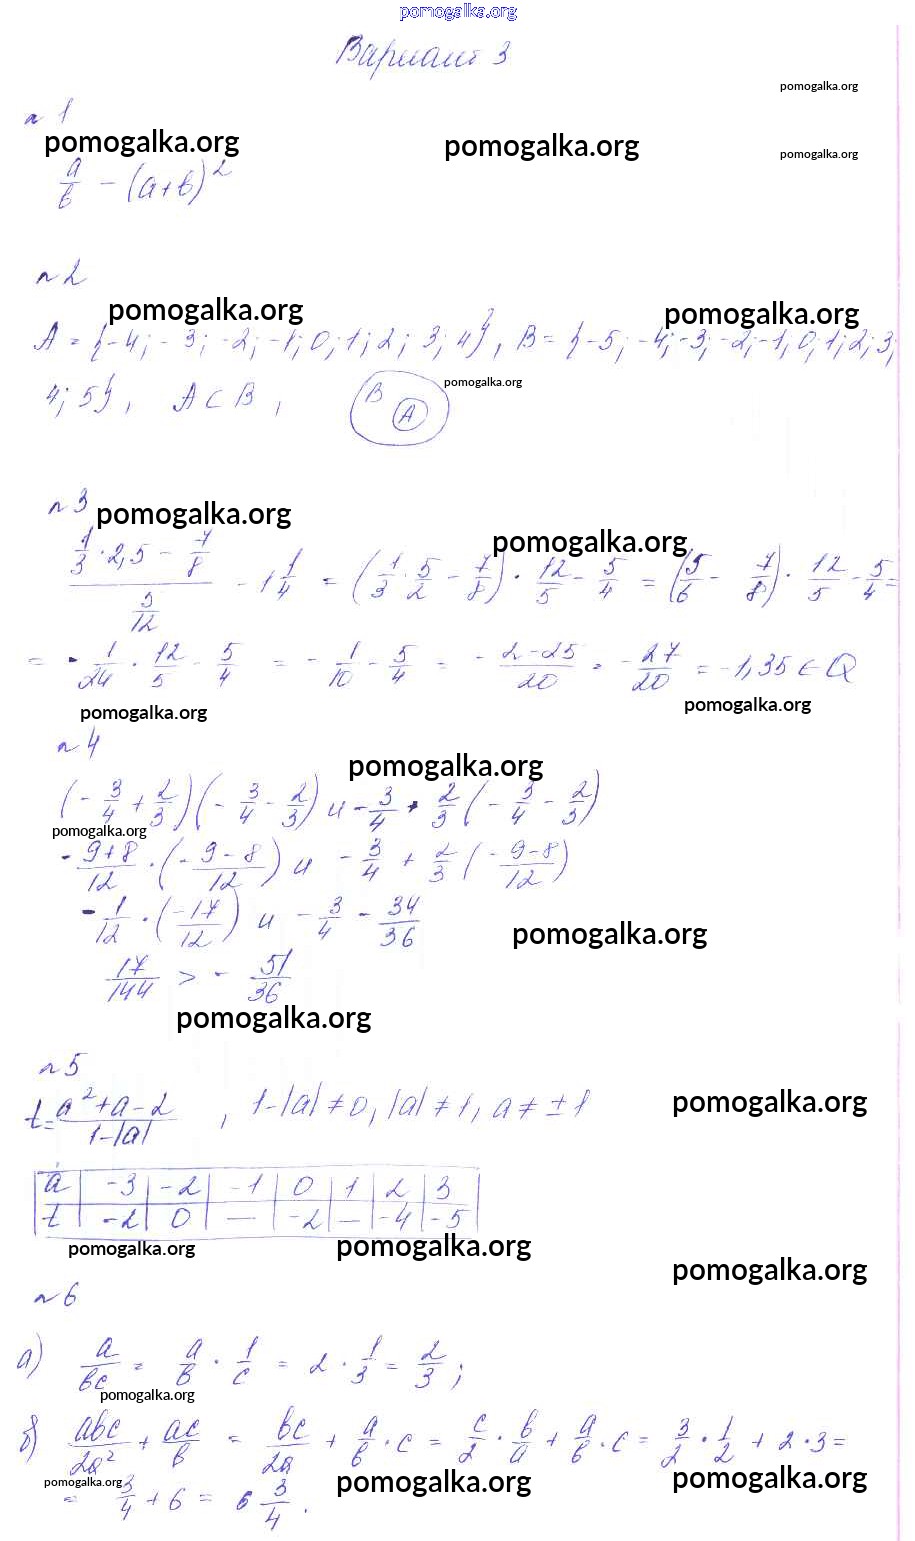 pomogalka.org
Вариант 3
pomogalka.org
№ 1
pomogalka.org pomogalka.org pomogalka.org
a/b - (a+b)²
№ 2
pomogalka.org pomogalka.org
A = {-4; -3; -2; -1, 0; 1; 2; 3; 4}, B = {-5; -4; -3; -2; -1, 0; 1; 2; 3;
4; 5}, A ⊂ B, B A
pomogalka.org
№ 3 pomogalka.org
pomogalka.org
(1/3 · 2,5 - 7/8)/(5/12) - 1 1/4 = (1/3 · 5/2 - 7/8) · 12/5 - 5/4 = (5/6 - 7/8) · 12/5 - 5/4 =
= - 1/24 · 12/5 - 5/4 = - 1/10 - 5/4 = - (2-25)/20 = - 27/20 = -1,35 ∈ Q
pomogalka.org pomogalka.org
№ 4
pomogalka.org
(- 3/4 + 2/3)(- 3/4 - 2/3) и - 3/4 + 2/3 (- 3/4 - 2/3)
pomogalka.org
(-9+8)/12 · ((-9-8)/12) и - 3/4 + 2/3 ((-9-8)/12)
- 1/12 · (-17/12) и - 3/4 - 34/36
pomogalka.org
17/144 > - 51/36
pomogalka.org
№ 5
t = (a²+a-2)/(1-|a|), 1-|a| ≠ 0, |a| ≠ 1, a ≠ ±1
pomogalka.org
a -3 -2 -1 0 1 2 3
t -2 0 — -2 — -4 -5
pomogalka.org pomogalka.org
pomogalka.org
№ 6
а) a/bc = a/b · 1/c = 2 · 1/3 = 2/3;
pomogalka.org
б) abc/2a² + ac/b = bc/2a + a/b · c = c/2 · b/a + a/b · c = 3/2 · 1/2 + 2·3 =
pomogalka.org pomogalka.org pomogalka.org
= 3/4 + 6 = 6 3/4.